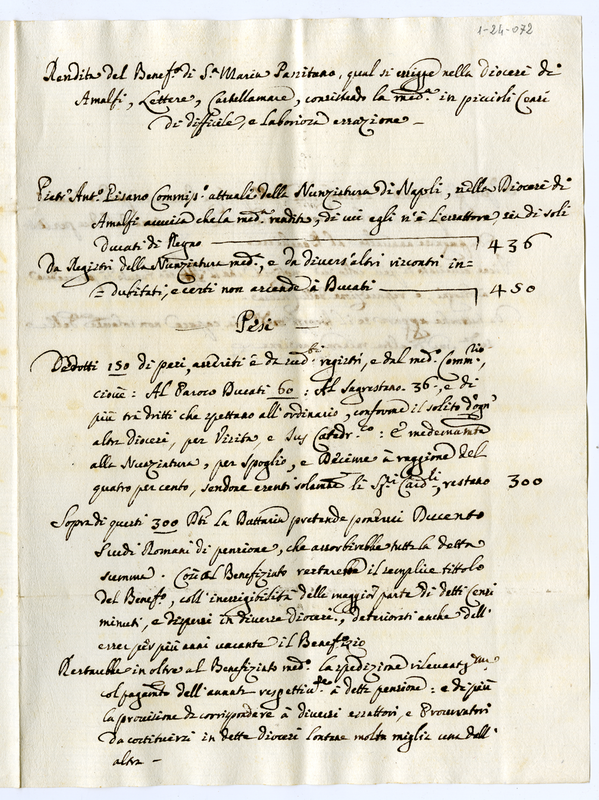 1-24-072
Rendita del Benef.o di S.a Maria Pasitano, qual si esigge nella Diocesi di
Amalfi, Lettere, Castellamare, consistendo la med.a in piccioli Censi
di difficile, e laboriosa essazione –
Pietr' Ant.o Pisano Commiss.o attuale della Nunziatura di Napoli, nella Diocesi di
Amalfi accusa che la med.a rendita, di cui egli n'è l'essattore, sia di soli
Ducati di Regno 436
Da Registri della Nunziatura med.a, e da divers'altri riscontri in=
=dubitati, e certi non ascende à Ducati 450
Pesi
Dedotti 150 di pesi, asseriti è da med.i registri, e dal med.o Comm.rio
cioue: Al Paroco Ducati 60: Al Sagrestano 36, e di
più tri dritti che spettano all'ordinario, conforme il solito d'ogn'
altra Diocesi, per Visita e Jus Catedr.co: E medemamte
alla Nunziatura, per Spoglio, e Decime à raggione del
quatro per cento, sendone esenti solamte li Sri Cardli, restano 300
Sopra di questi 300 Dti la Dattaria pretende ponervi Ducento
Scudi Romani di pensione, che assorbirebbe tutta la detta
summa. Cosi al Benefiziato restarebbe il semplice tittolo
del Benef.o, coll'inesigibilità della maggior parte di detti Censi
minuti, e dispersi in diverse Diocesi, deteriorati anche dall'
esser per più anni vacante il Benefizio
Restarebbe in oltre al Benefiziato med.o la spedizione rilevante
col pagamto dell'annata respettiva à dette pensione: e di più
la provisione da corrispondere à diversi essattori, e Procuratori
da costituirsi in dette diocesi lontane molte miglia una dall'
altra –